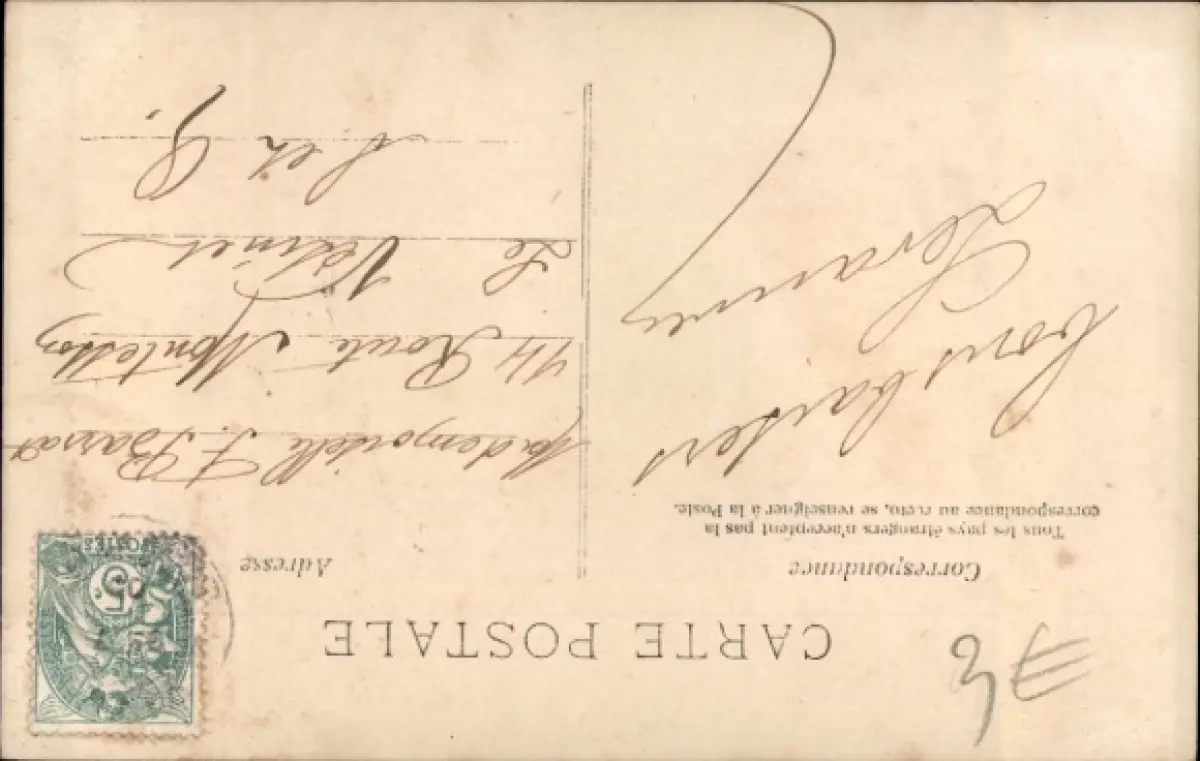 CARTE POSTALE
Correspondance
Tous les pays étrangers n'acceptent pas la
correspondance au recto, se renseigner à la Poste.
Bons baisers
Adresse
Mademoiselle F. Barrat
44 Route Montesson
Le Vésinet
S et O.
POSTES
5